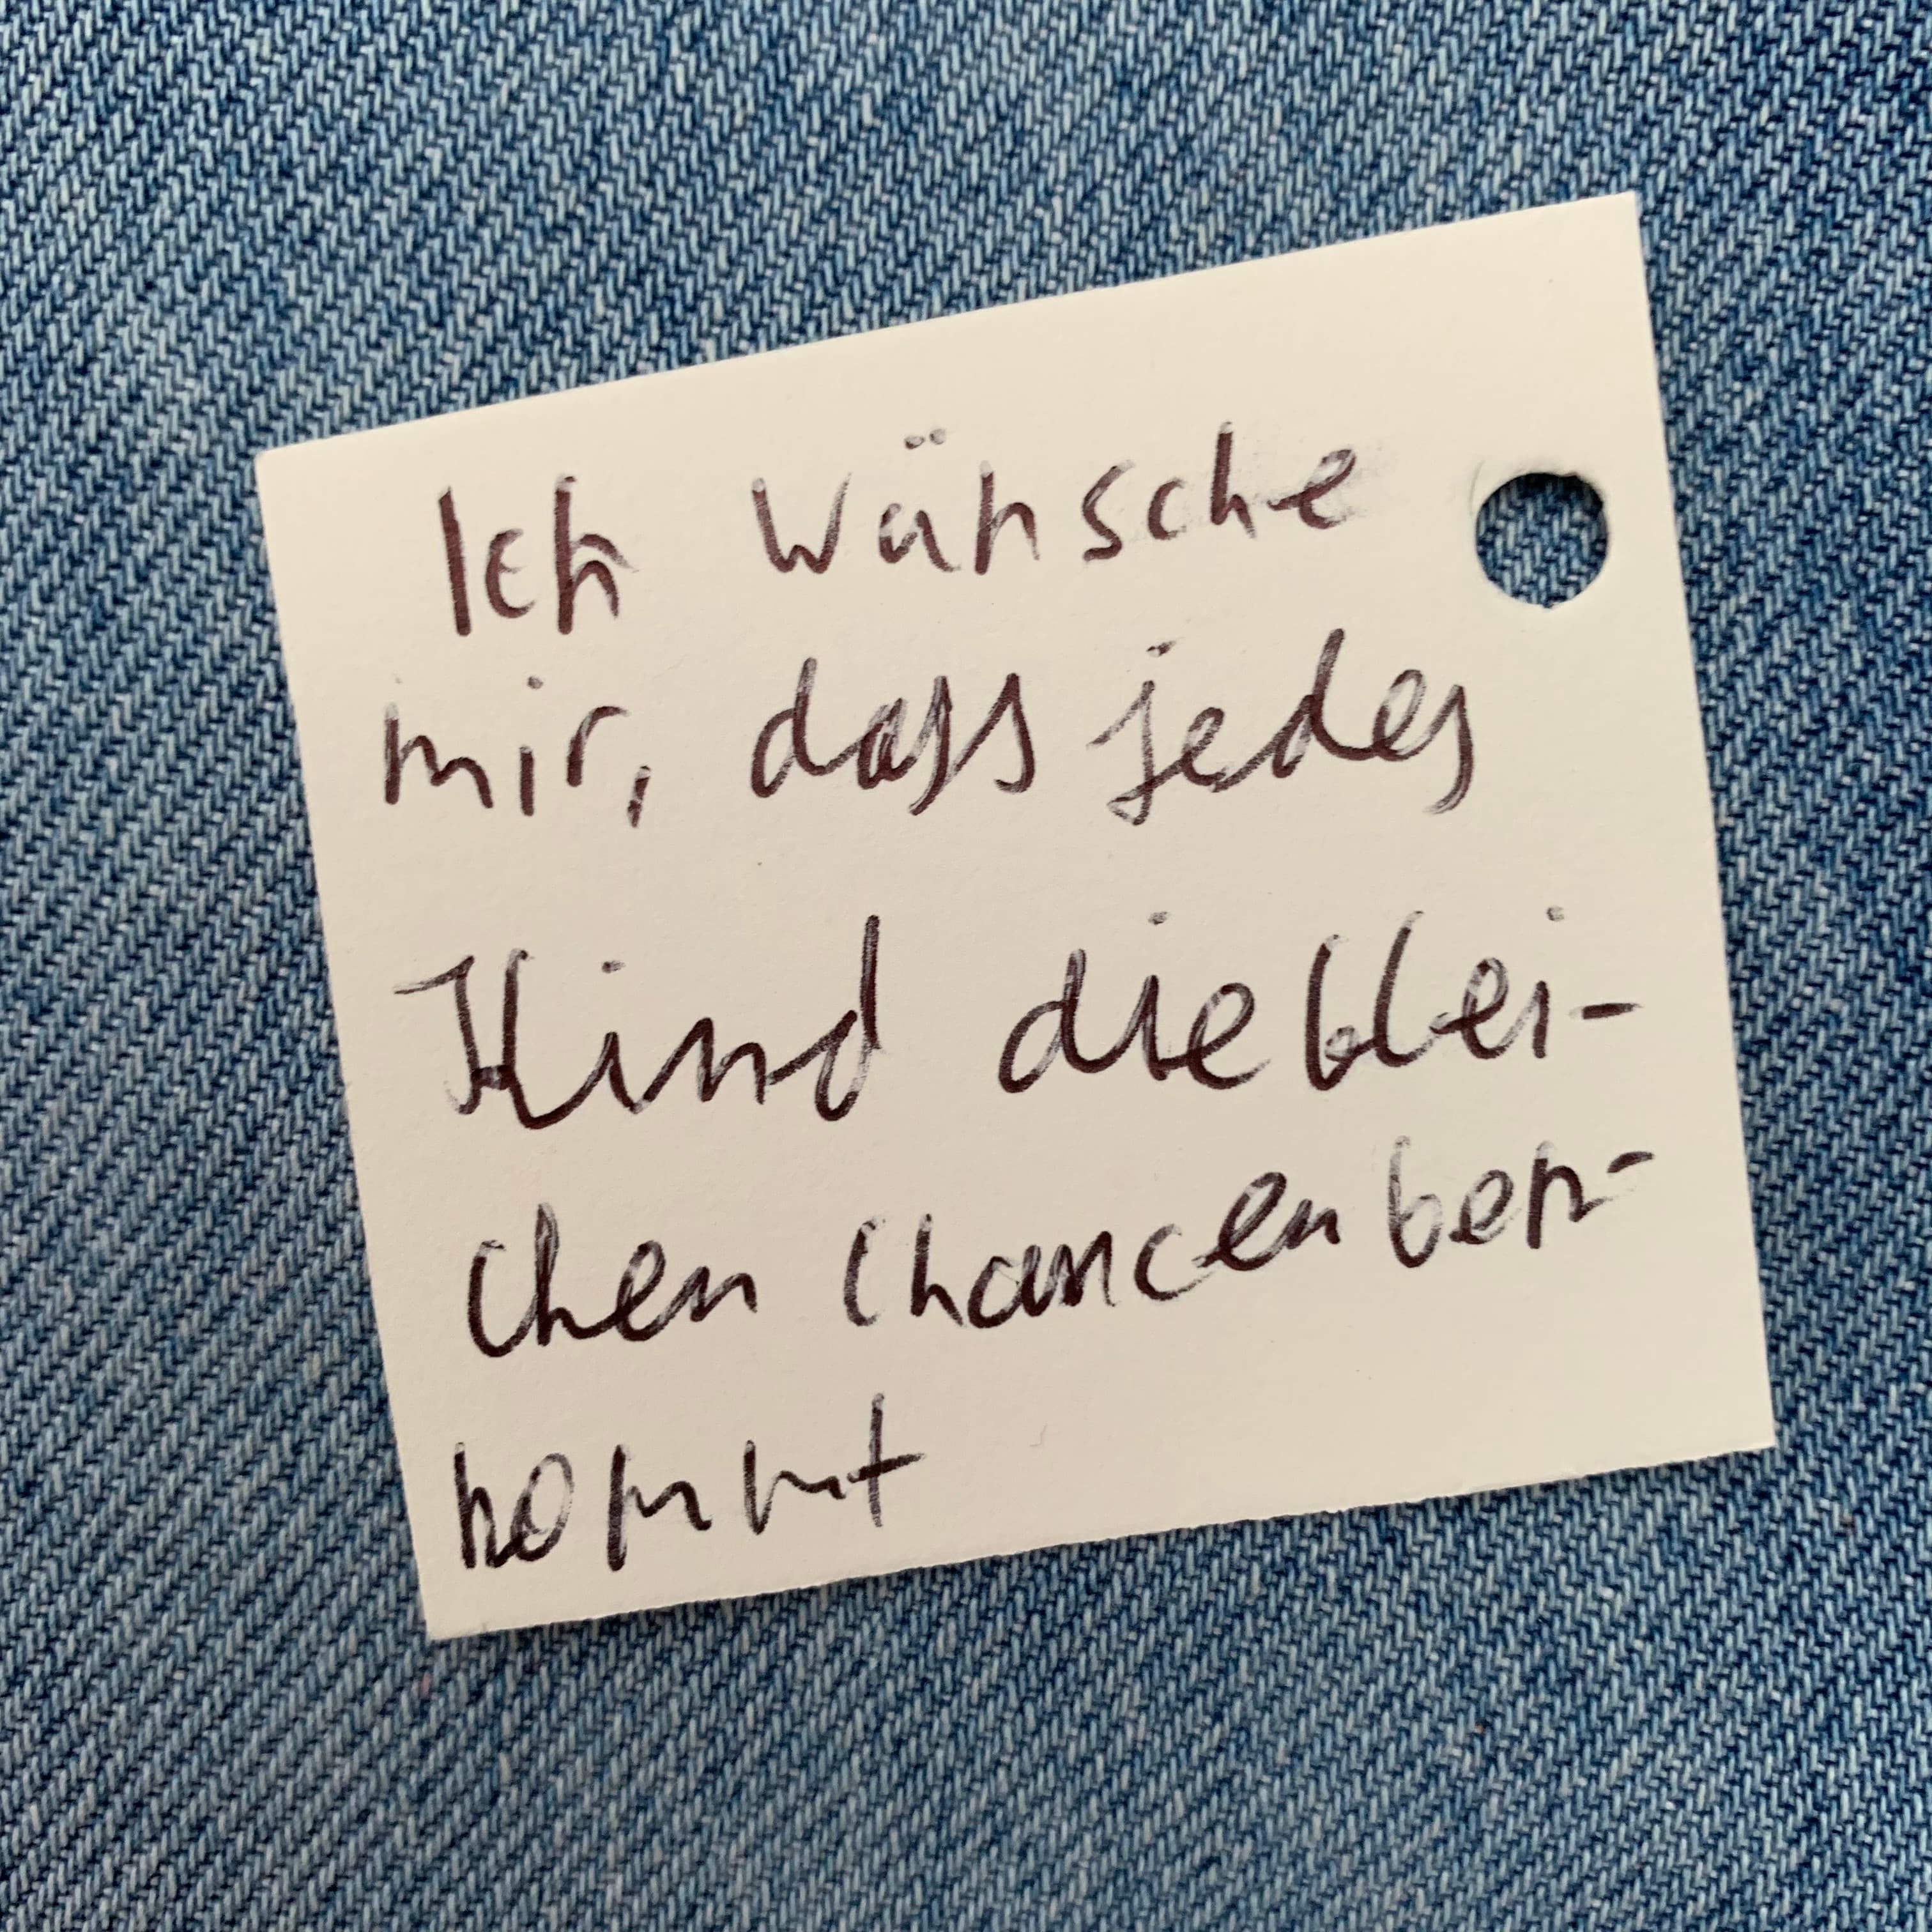 Ich wünsche
mir, dass jedes
Kind die glei-
chen Chancen ben-
kommt